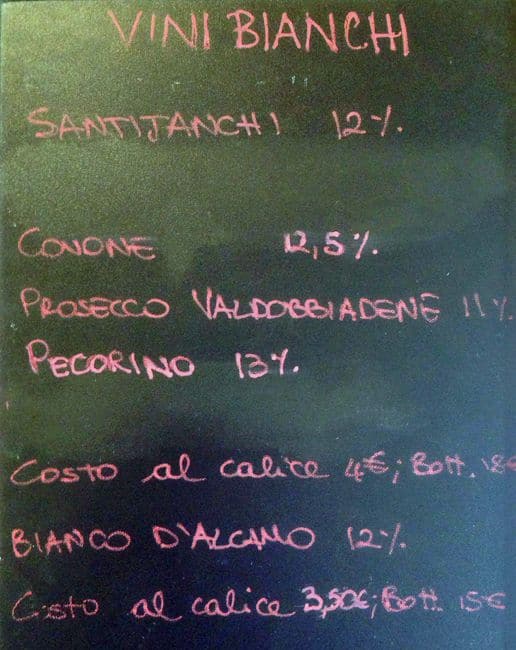 VINI BIANCHI
SANTIJANCHI 12%.
COVONE 12,5%.
PROSECCO VALDOBBIADENE 11%.
PECORINO 13%.
Costo al calice 4€; Bott. 18€
BIANCO D'ALCAMO 12%.
Costo al calice 3,50€; Bott. 15€